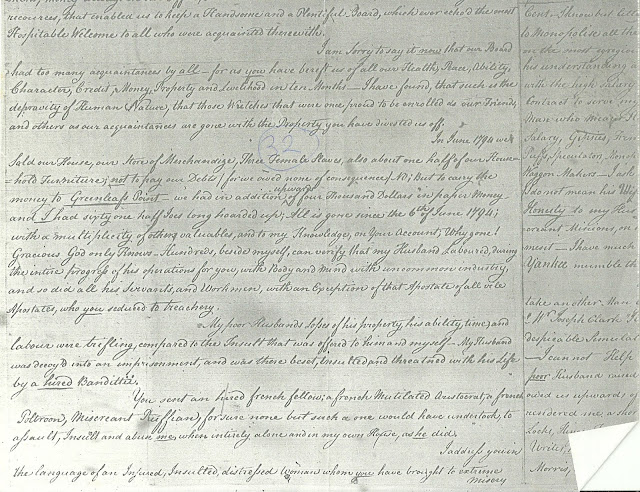 recources, that enabled us to keep a Handsome and a Plentiful Board, which ever echo'd the most
Hospitable Welcome to all who were acquainted therewith.
I am Sorry to say it now that our Board
had too many acquaintances by all — for as you have bereft us of all our Health, Peace, Ability,
Character, Credit, Money, Property and Livelihood in ten Months — I have found, that such is the
depravity of Human Nature, that those Wretches that were once proud to be enrolled as our Friends,
and others as our acquaintances are gone with the Property you have divested us off.
In June 1794 we
Sold our House, our Store of Merchandize, Three Female Slaves, also about one half of our House
=hold Furniture; not to pay our Debts (for we owed none of consequence) No; But to carry the
money to Greenleafs Point — we had in addition upwards of four Thousand Dollars in paper Money
and I had sixty one half Joes long hoarded up; All is gone since the 6th of June 1794;
with a multiplicity of other valuables, and to my Knowledge, on Your Account; Why gone!
Gracious God only Knows — Hundreds, beside myself, can verify that my Husband Laboured, during
the intire progress of his operations for you, with Body and Mind with uncommon industry
and so did all his Servants, and Workmen, with an Exception of that Apostate of all vile
Apostates, who you seduced to treachery.
My poor Husbands Losses of his property, his ability, time, and
labour were trifling, compared to the Insult that was offered to him and myself — My Husband
was decoy'd into an imprisonment, and was there beset, Insulted and threatned with his Life
by a hired Banditti.
You sent an hired french fellow, a french Mutilated Aristocrat, a french
Poltroon, Miscreant Ruffian, for sure none but such a one would have undertook, to
assault, Insult and abuse me, when intirely alone and in my own House, as he did.
I address you in
the language of an Injured, Insulted, distressed Woman whom you have brought to extreme
misery
32
Cent. I know but
to Monopolise all the
in the most egregious
his understanding
with the high Salary
Contract to serve
Man who
Salary,
Puffs, Speculator,
Waggon Makers — I ask
I do not mean his
Honesty to my Hus
Minions, on
merit — I have much
Yankee mumble the
take another, Man
Mr Joseph Clark
despicable Simelar
— I can not Help
poor Husband
owed us upwards of
rendered me, as her
Locke,
Writer,
Morris,